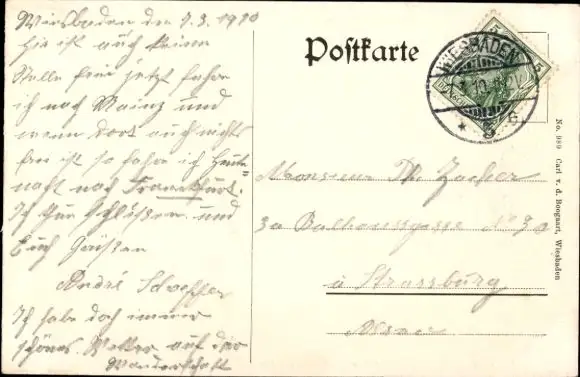 Wiesbaden den 7.3.1910
Hier ist auch keine
Stelle frei jetzt fahre
ich nach Mainz und
wenn dort auch nichts
frei ist so fahre ich heute
nach Frankfurt.
Ich und
Euch Grüßen
André Schaeffer
Ich habe doch immer
schönes Wetter auf der
Wanderschaft
Postkarte
WIESBADEN
5
Monsieur
3a Ballhausgasse No 3a
à Strassburg
Alsace
No. 989 Carl v. d. Boogaart, Wiesbaden